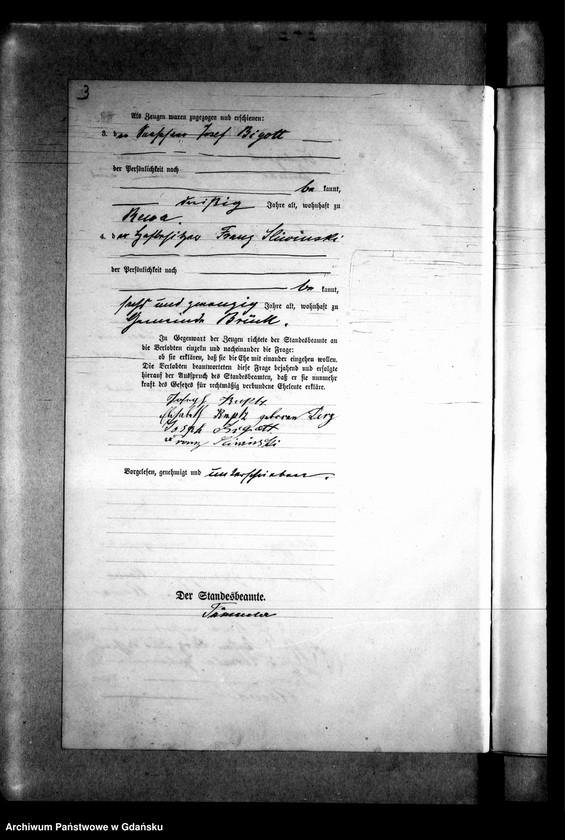 3
Als Zeugen waren zugezogen und erschienen:
3. der Josef Bigott
der Persönlichkeit nach
be kannt,
dreißig Jahre alt, wohnhaft zu
Rewa.
4. der Hofbesitzer Franz Sliwinski
der Persönlichkeit nach
be kannt,
sechs und zwanzig Jahre alt, wohnhaft zu
Gemeinde Brück.
In Gegenwart der Zeugen richtete der Standesbeamte an
die Verlobten einzeln und nacheinander die Frage:
ob sie erklären, daß sie die Ehe mit einander eingehen wollen.
Die Verlobten beantworteten diese Frage bejahend und erfolgte
hierauf der Ausspruch des Standesbeamten, daß er sie nunmehr
kraft des Gesetzes für rechtmäßig verbundene Eheleute erkläre.
Joseph
Elisabeth geboren
Joseph Bigott
Franz Sliwinski
Vorgelesen, genehmigt und unterschrieben.
Der Standesbeamte.
Archiwum Państwowe w Gdańsku